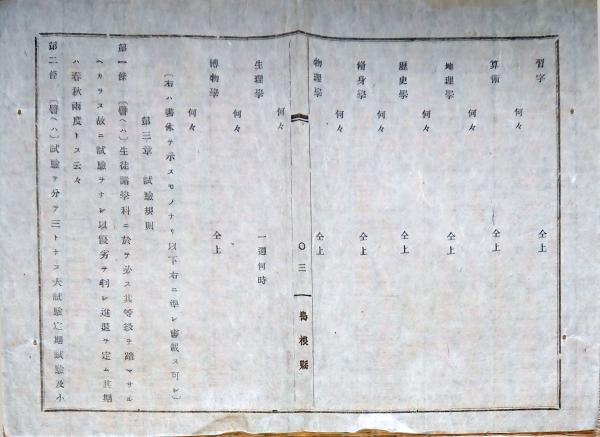 習字
何々　仝上
算術
何々　仝上
地理學
何々　仝上
歷史學
何々　仝上
脩身學
何々　仝上
物理學　仝上
〇三　島根縣
何々
生理學　一週何時
何々
博物學　仝上
何々
（右ハ書体ヲ示スモノナリ以下右ニ準シ書載ス可シ）
第三章　試驗規則
第一條　（譬ヘハ）生徒諸學科ニ於テ必ス其等級ヲ踏マサル
ヘカラス故ニ試驗ヲナシ以優劣ヲ判シ進退ヲ定ム其期
ハ春秋兩度トス云々
第二條　（譬ヘハ）試驗ヲ分テ三トナス大試驗定期試驗及小